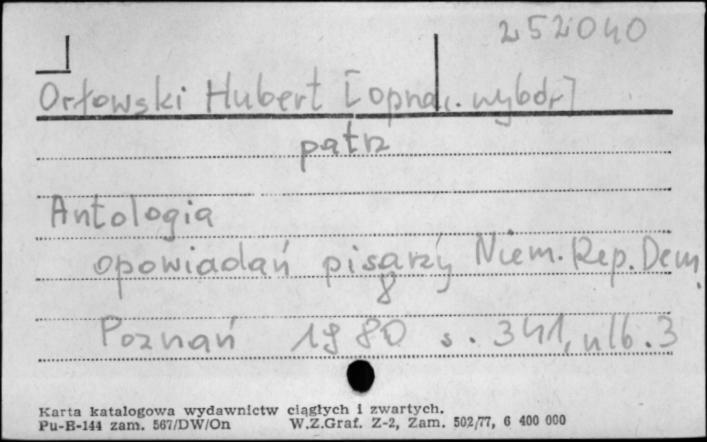 252040
Orłowski Hubert [oprac. wybór]
patrz
Antologia
opowiadań pisarzy Niem. Rep. Dem.
8
Poznań 1980 s. 341, nlb. 3
Karta katalogowa wydawnictw ciągłych i zwartych.
Pu-B-144 zam. 567/DW/On W.Z.Graf. Z-2, Zam. 502/77, 6 400 000